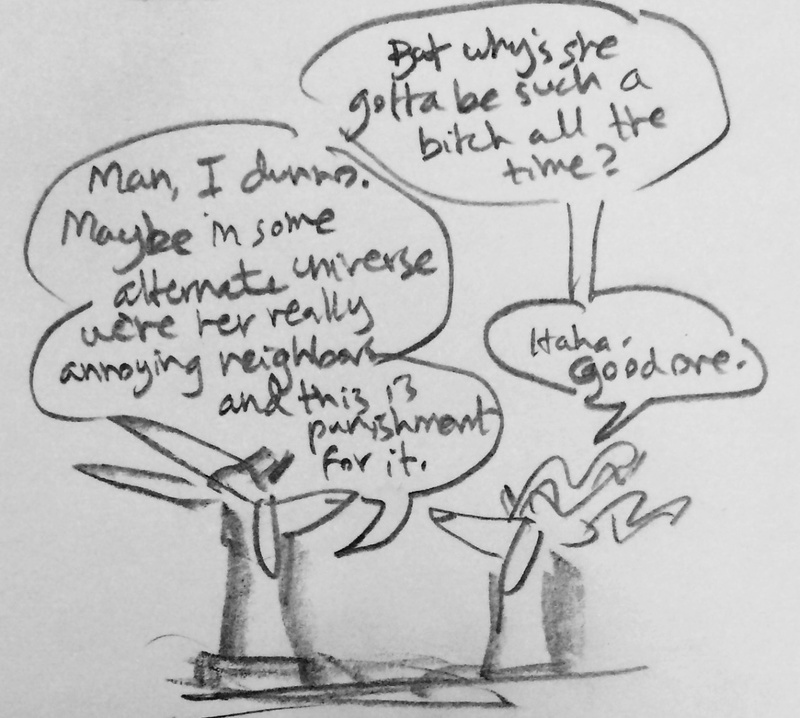 But why's she
gotta be such a
bitch all the
time?
Man, I dunno.
Maybe in some
alternate universe
we're her really
annoying neighbors
and this is
punishment
for it.
Haha.
Good one.